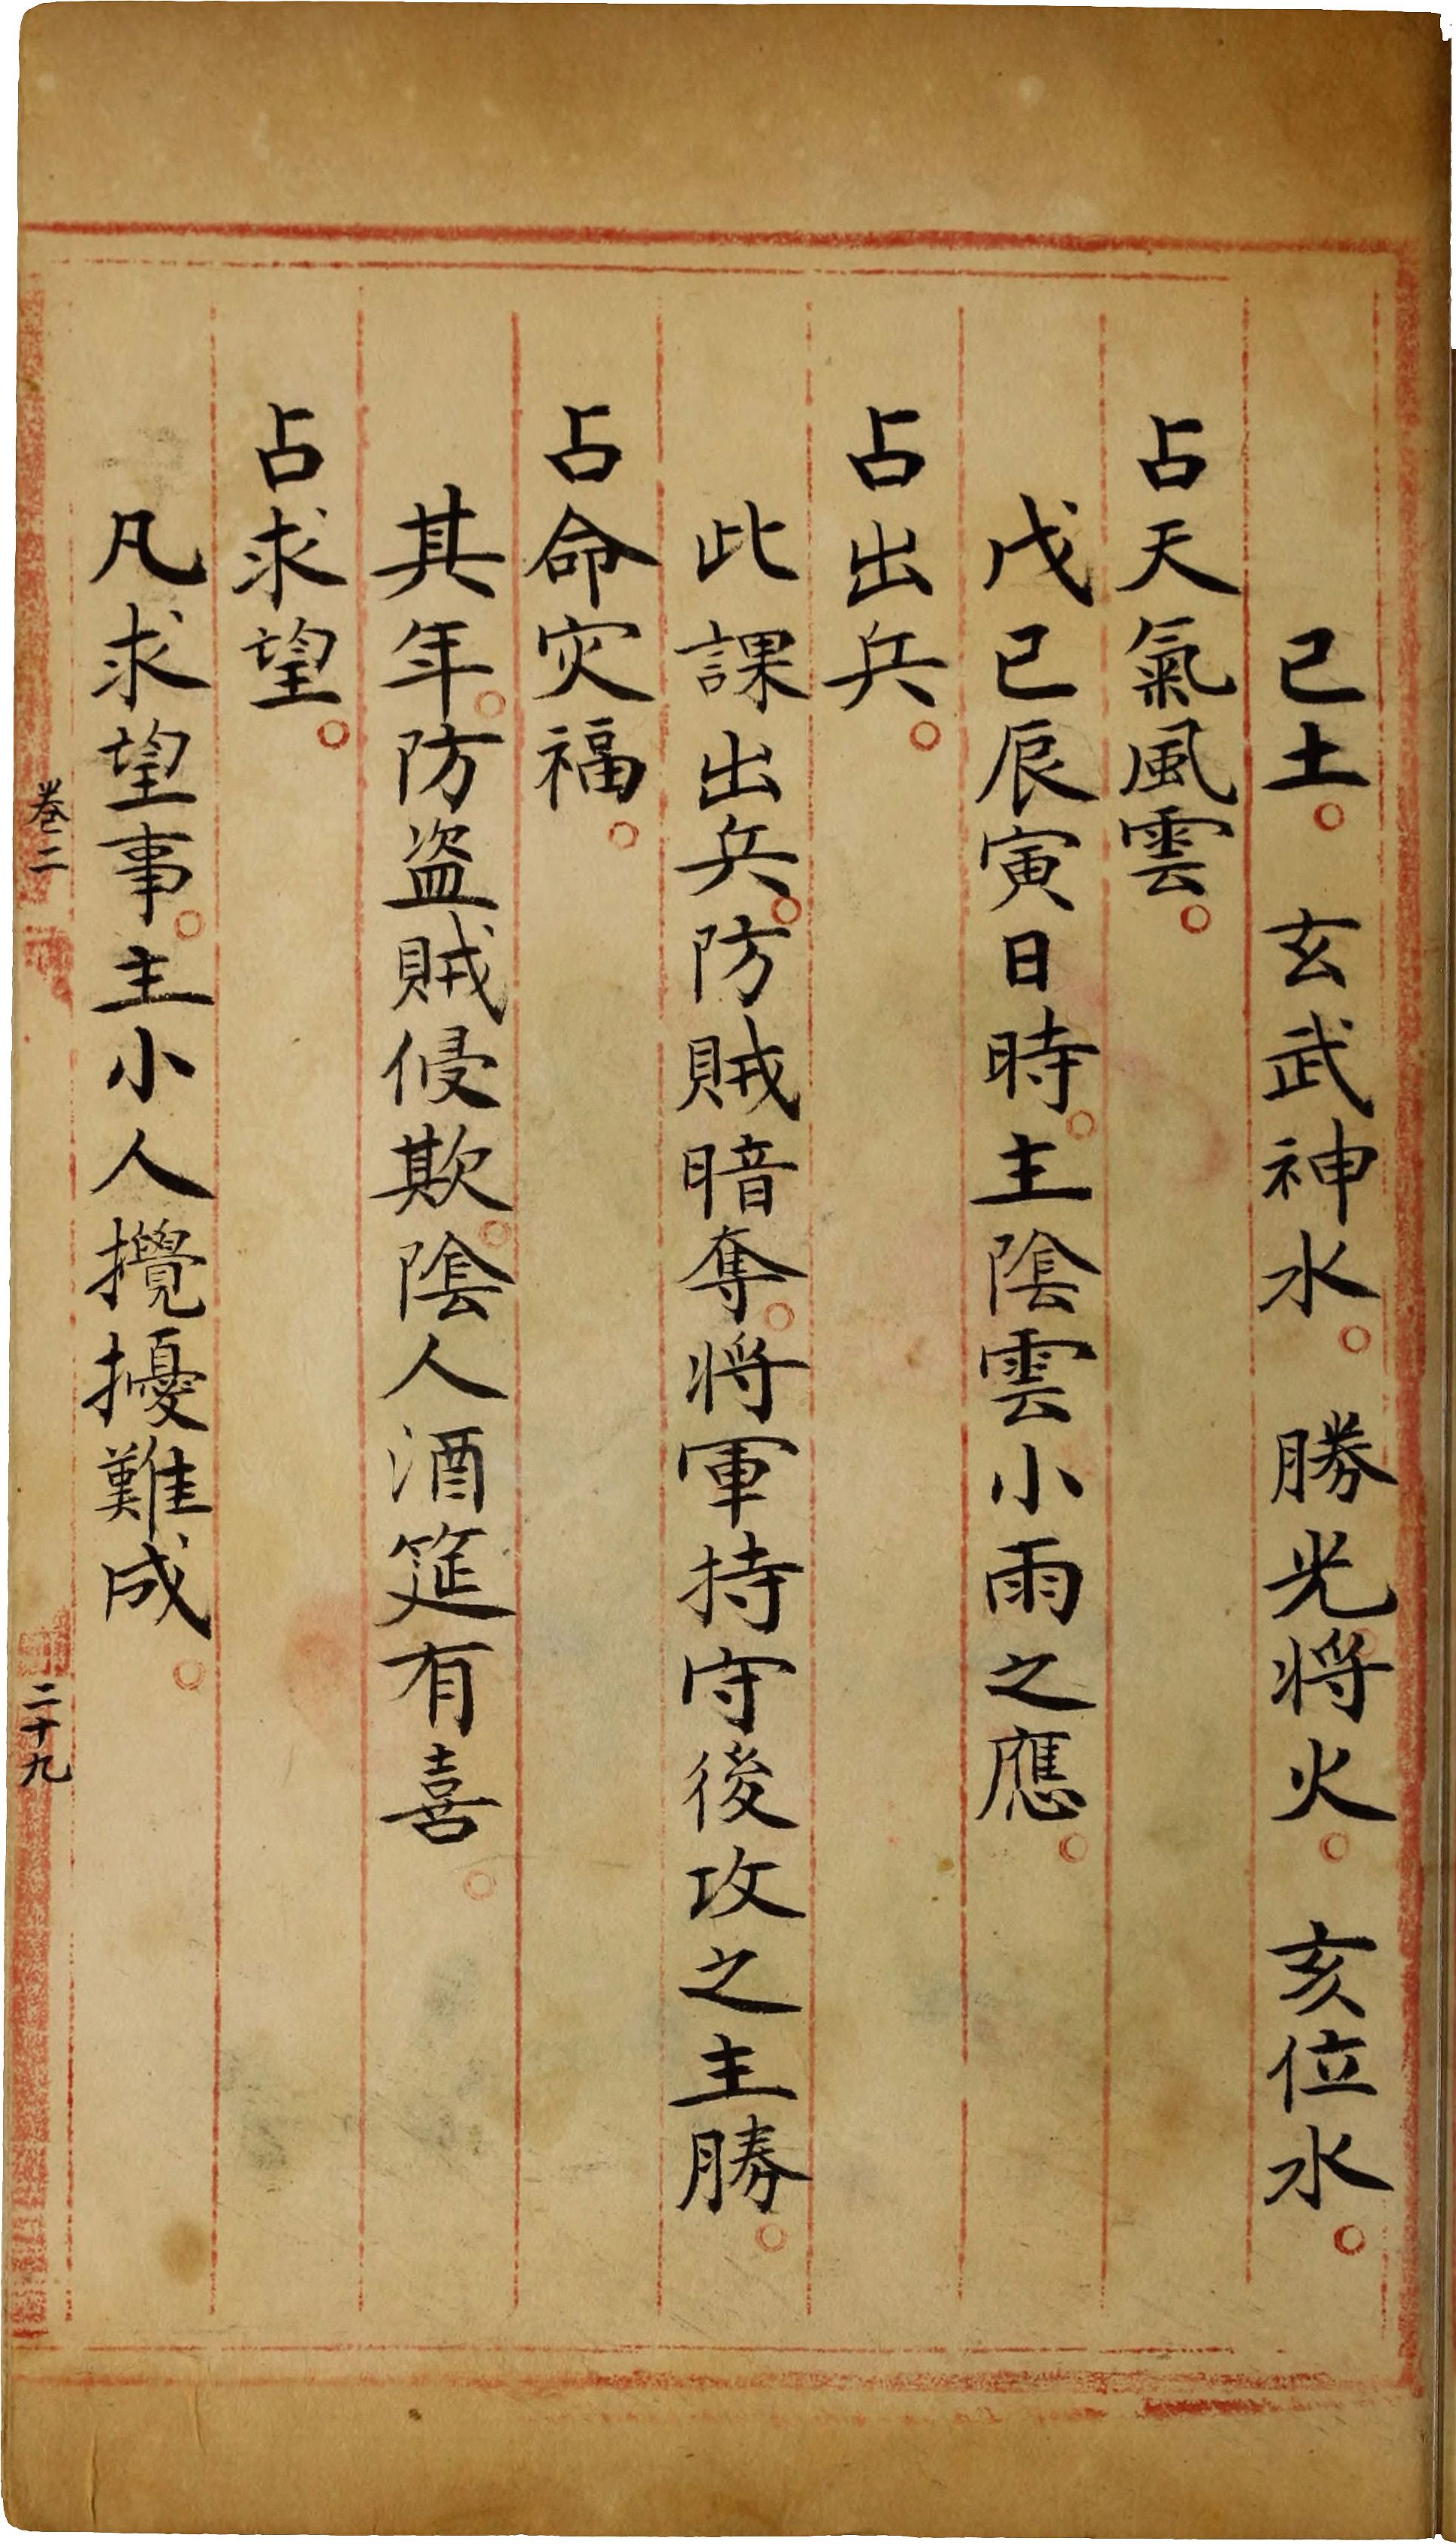 己土。玄武神水。勝光將火。亥位水。
占天氣風雲。
戊己辰寅日時。主陰雲小雨之應。
占出兵。
此課出兵。防賊暗奪。將軍持守後攻之主勝。
占命灾福。
其年。防盗賊侵欺。陰人酒筵有喜。
占求望。
凡求望事。主小人攪擾難成。
卷二
二十九